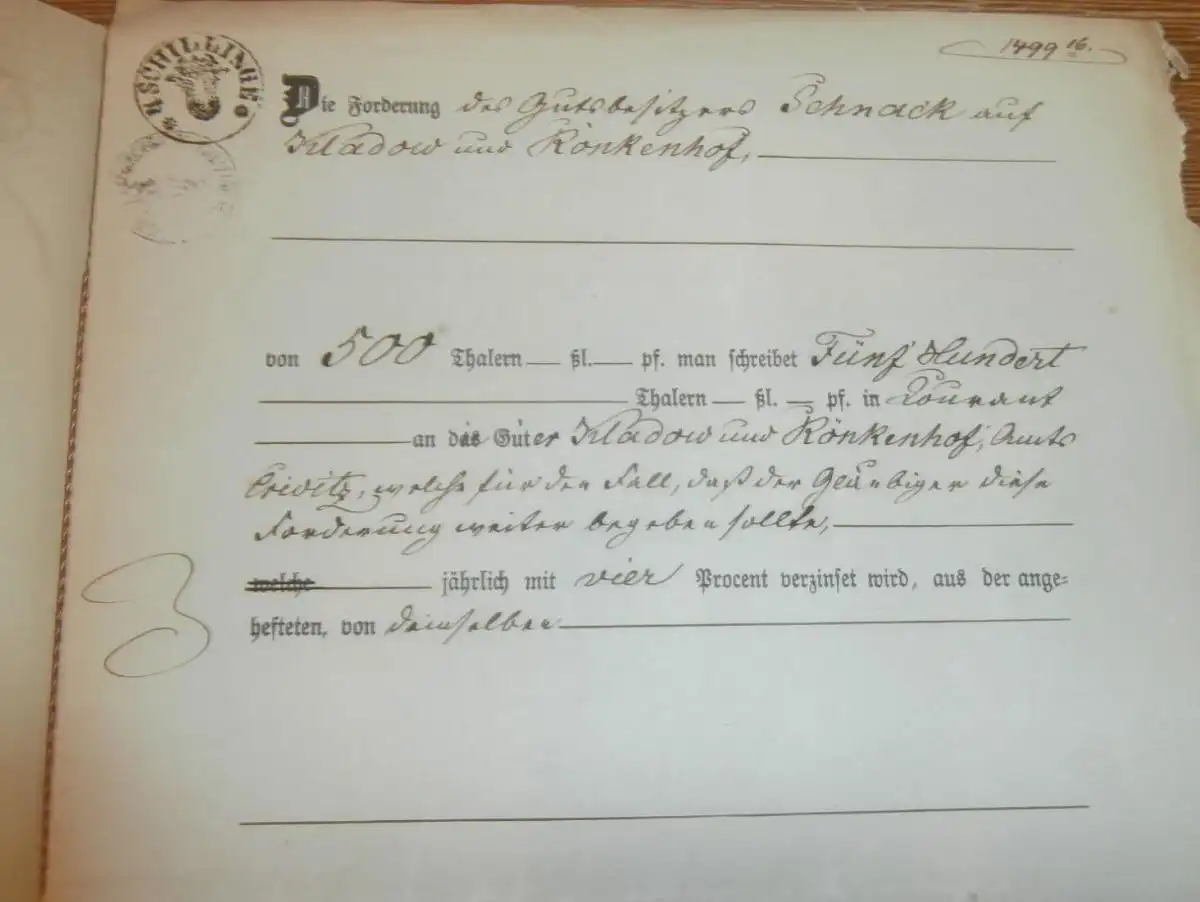 1499 16.
4 SCHILLINGE
Die Forderung des Gutsbesitzers Schnack auf
Kladow und Rönkenhof,
von 500 Thalern — ßl. — pf. man schreibet Fünf Hundert
Thalern — ßl. — pf. in Courant
an die Güter Kladow und Rönkenhof, Amts
Crivitz, welche für den Fall, daß der Gläubiger diese
Forderung weiter begeben sollte,
welche jährlich mit vier Procent verzinset wird, aus der ange-
hefteten, von demselben
3